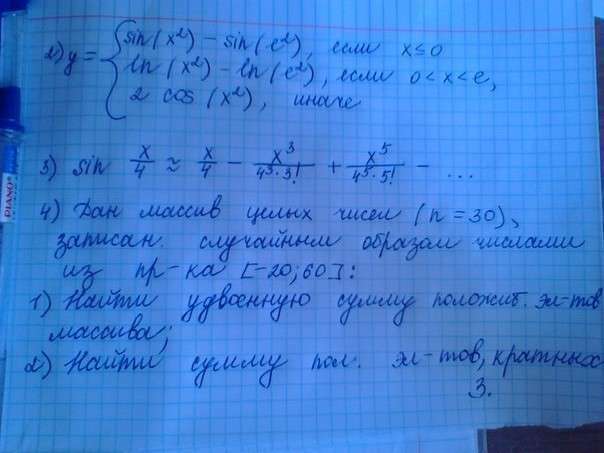 2) y = { sin(x²) - sin(c²), если x ≤ 0
ln(x²) - ln(c²), если 0 < x < c,
2 cos(x²), иначе
3) sin x/4 ≈ x/4 - x³/4³·3! + x⁵/4⁵·5! - ...
4) Дан массив целых чисел (n = 30),
записан. случайным образом числами
из пр-ка [-20; 60]:
1) Найти удвоенную сумму положит. эл-тов
массива;
2) Найти сумму пол. эл-тов, кратных
3.
PIANO